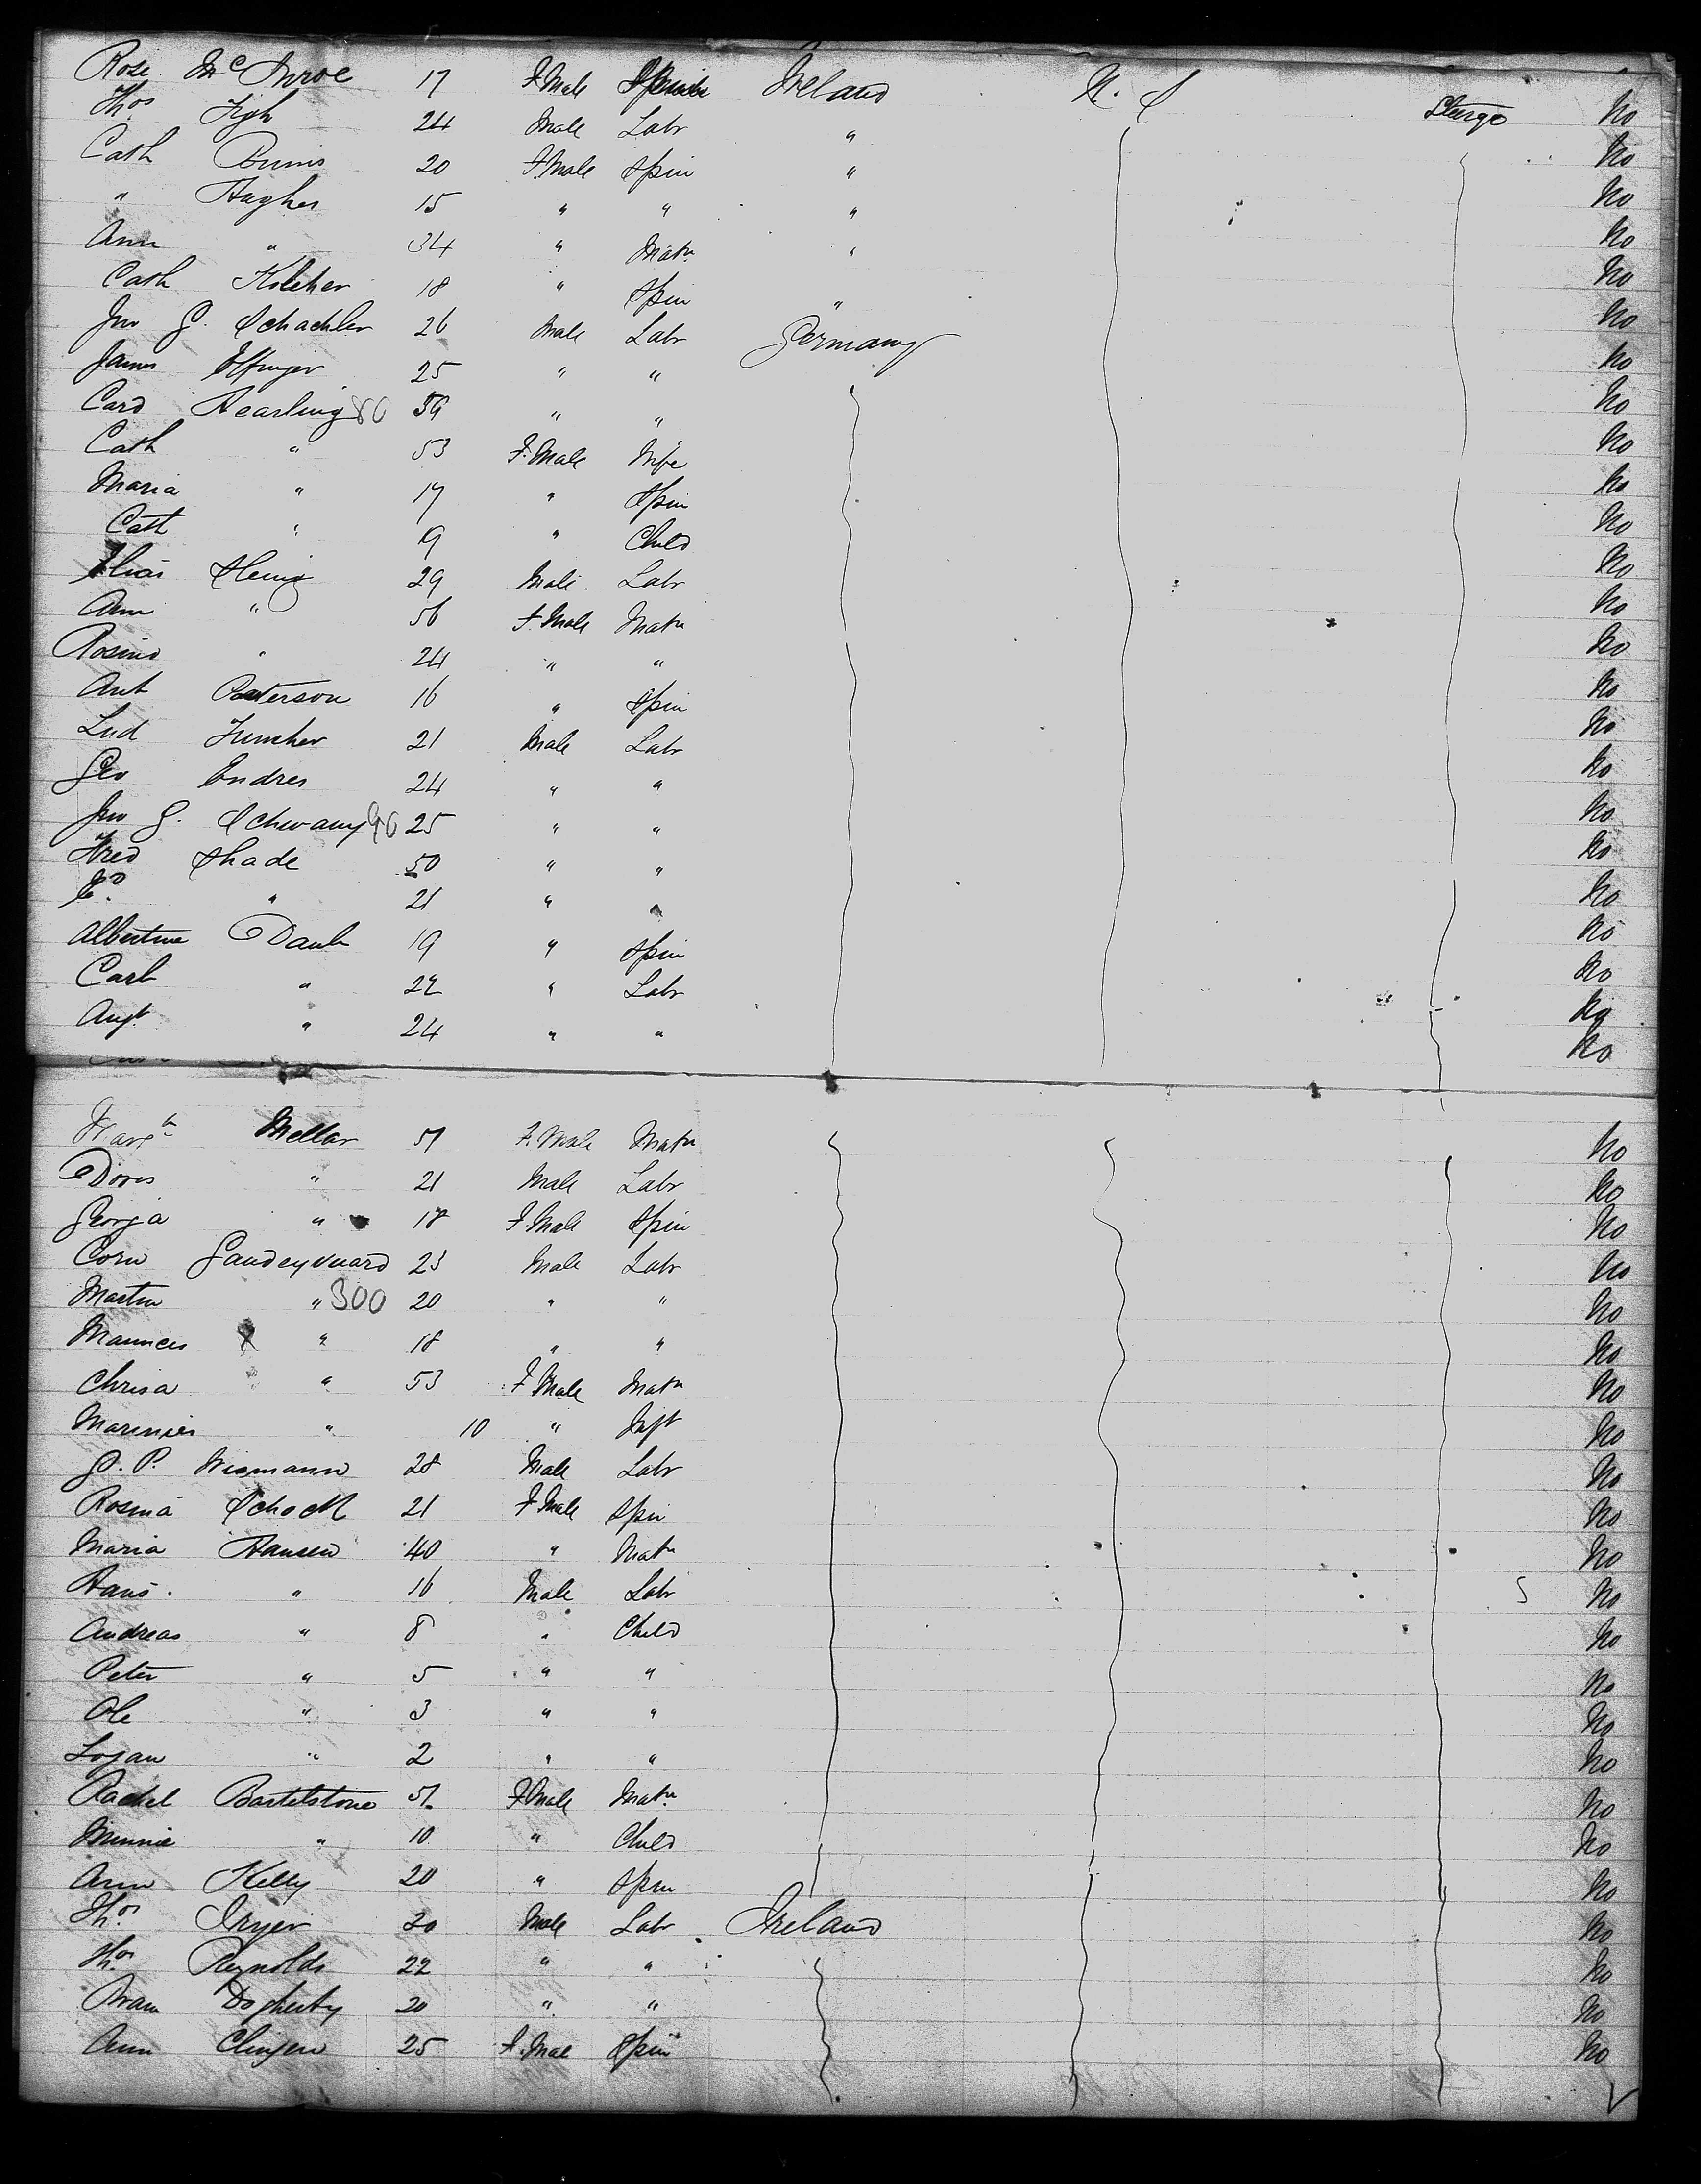 Rose McInroe 17 F Male Spinster Ireland U. S Steerage No
Thos Tigh 24 Male Labr " No
Cath Burns 20 F. Male Spin " No
" Hughes 15 " " " No
Ann " 34 " Matn " No
Cath Keleher 18 " Spin " No
Jno G. Schachler 26 Male Labr Germany No
James 25 " " No
Card Hearling 80 59 " " No
Cath " 53 F. Male Wife No
Maria " 17 " Spin No
Cath " 9 " Child No
Elias 29 Male Labr No
Ann " 56 F Male Matn No
Rosina " 24 " " No
Ant Paterson 16 " Spin No
Lud Juncker 21 Male Labr No
Geo Endres 24 " " No
Jno G. Schwamy 90 25 " " No
Fred Shade 50 " " No
Ed " 21 " " No
Albertine Daub 19 " Spin No
Carl " 22 " Labr No
Augt " 24 " " No
Margt Mellar 51 F. Male Matn No
Dores " 21 Male Labr No
Georga " 18 F Male Spin No
Corn 23 Male Labr No
Martin " 300 20 " " No
Maunces " 18 " " No
Chrisa " 53 F Male Matn No
Marinies " 10 " Inft No
G. P. Wiemann 28 Male Labr No
Rosina Schock 21 F Male Spin No
Maria Hansen 40 " Matn No
Hans " 16 Male Labr No
Andreas " 8 " Child No
Peter " 5 " " No
Ole " 3 " " No
Logan " 2 " " No
Rachel Bartelstone 51 F Male Matn No
Minnie " 10 " Child No
Ann Kelly 20 " Spin No
Thos Dryer 20 Male Labr Ireland No
Thos Reynolds 22 " " No
Dogherty 20 " " No
Ann Clingen 25 F. Mal Spin No